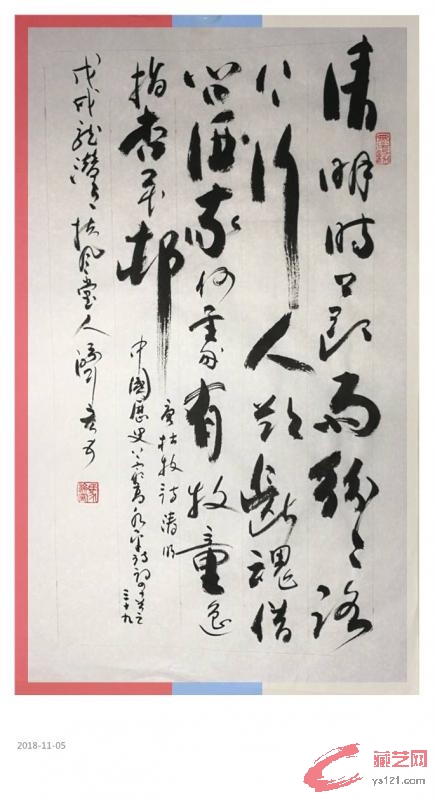 清明时节雨纷〻路
上行人欲断魂借
问酒家何处有牧童遥
指杏花村
唐杜牧诗清明
中国历史
之
三十九
戊戌龙潜月扶风堂人
2018-11-05
藏艺网
ys121.com